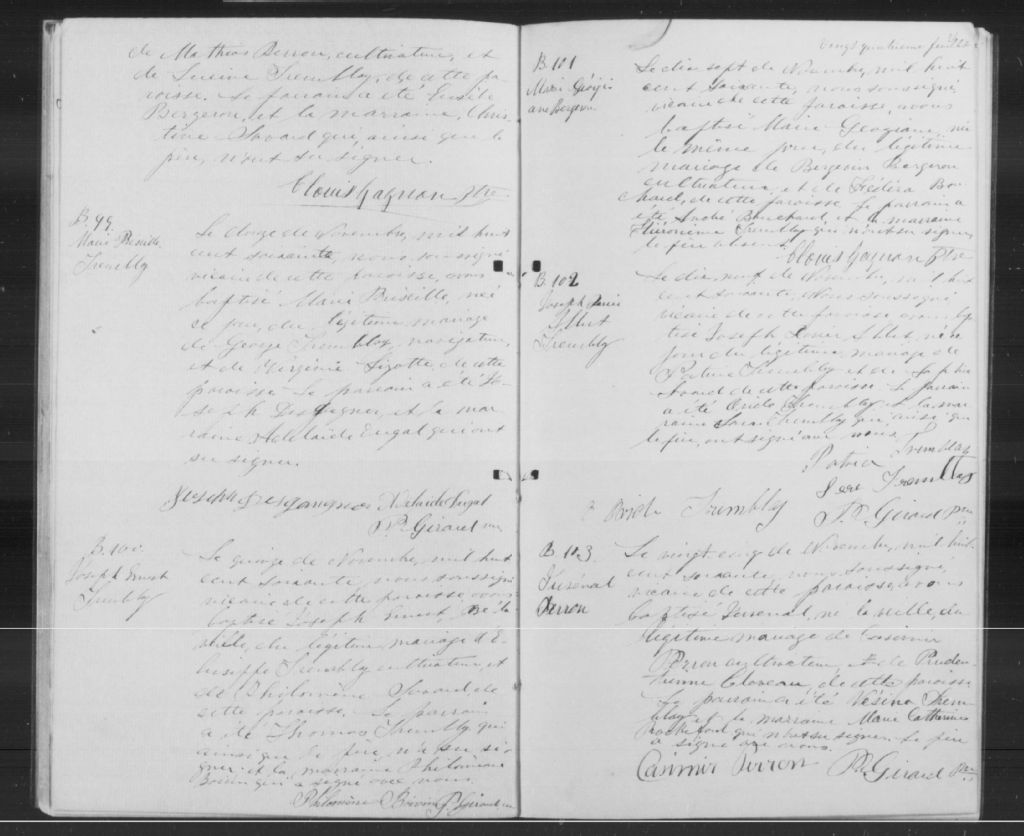 de Mathias Perron, cultivateur, et
de Lucine Tremblay, de cette pa-
roisse. Le parrain a été
Bergeron, et la marraine, Chris-
tine Savard qui, ainsi que le
père, n'ont su signer.
Clovis Gagnon Ptre
B. 99.
Marie
Trembly
Le douze de Novembre, mil huit
cent soixante, nous soussigné
vicaire de cette paroisse, avons
baptisé Marie Priscille, née
ce jour, du légitime mariage
de George Trembley, navigateur,
et de Virginie Lizotte, de cette
paroisse. Le parrain a été Jo-
seph Desgagnes, et la mar-
raine Adelaïde Dugal qui ont
su signer.
Joseph Desgagnes Adelaide Dugal
P. Girard
B. 100
Joseph Ernest
Trembly
Le quinze de Novembre, mil huit
cent soixante, nous soussigné
vicaire de cette paroisse, avons
baptisé Joseph Ernest, né la
veille, du légitime mariage d'E-
Trembly, cultivateur, et
de Philomène Savard, de
cette paroisse. Le parrain
a été Thomas Trembly qui
ainsi que le père n'a su si-
gner et la marraine Philomène
Boivin qui a signé avec nous.
Philomène Boivin P. Girard
vingt quatrième feuillet
B 101
Marie Géorgi
ane Bergeron
Le dix sept de Novembre, mil huit
cent soixante, nous soussigné,
vicaire de cette paroisse, avons
baptisé Marie Georgiane, née
le même jour, du légitime
mariage de Bergeron
cultivateur, et de Bou-
chard, de cette paroisse. Le parrain a
été André Bouchard, et la marraine
Tremblay qui n'ont su signer,
le père absent.
Clovis Gagnon Ptre
B. 102
Joseph Louis
Albert
Trembly
Le dix neuf de Novembre, mil huit
cent soixante, Nous soussigné
vicaire de cette paroisse avons bap-
tisé Joseph Louis Albert, né ce
jour du légitime mariage de
Trembly et de Sophie
de cette paroisse. Le parrain
a été Trembly et la mar-
raine Sara Trembly qui, ainsi que
le père, ont signé avec nous.
Tremblay
Sara Trembley
Trembley P. Girard
B 103
Perron
Le vingt cinq de Novembre, mil huit
cent soixante, nous soussigné,
vicaire de cette paroisse, avons
baptisé né la veille, du
légitime mariage de Casimir
Perron cultivateur, et de Pruden-
tienne Claveau, de cette paroisse.
Le parrain a été Trem-
blay et la marraine Marie Catherine
Rochefort qui n'ont su signer. Le père
a signé avec nous.
Casimir Perron P. Girard